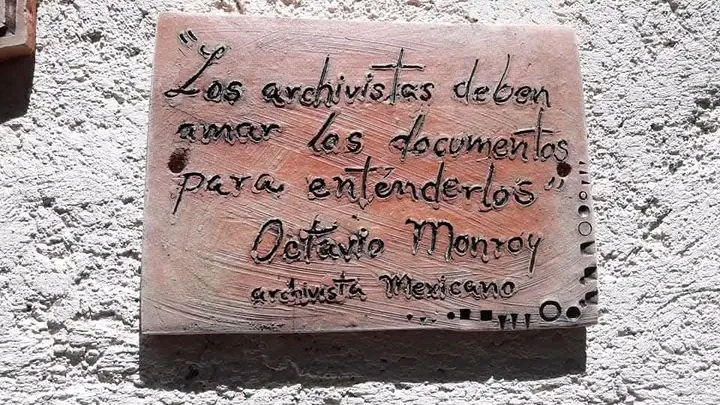 "Los archivistas deben
amar los documentos
para entenderlos"
Octavio Monroy
archivista Mexicano